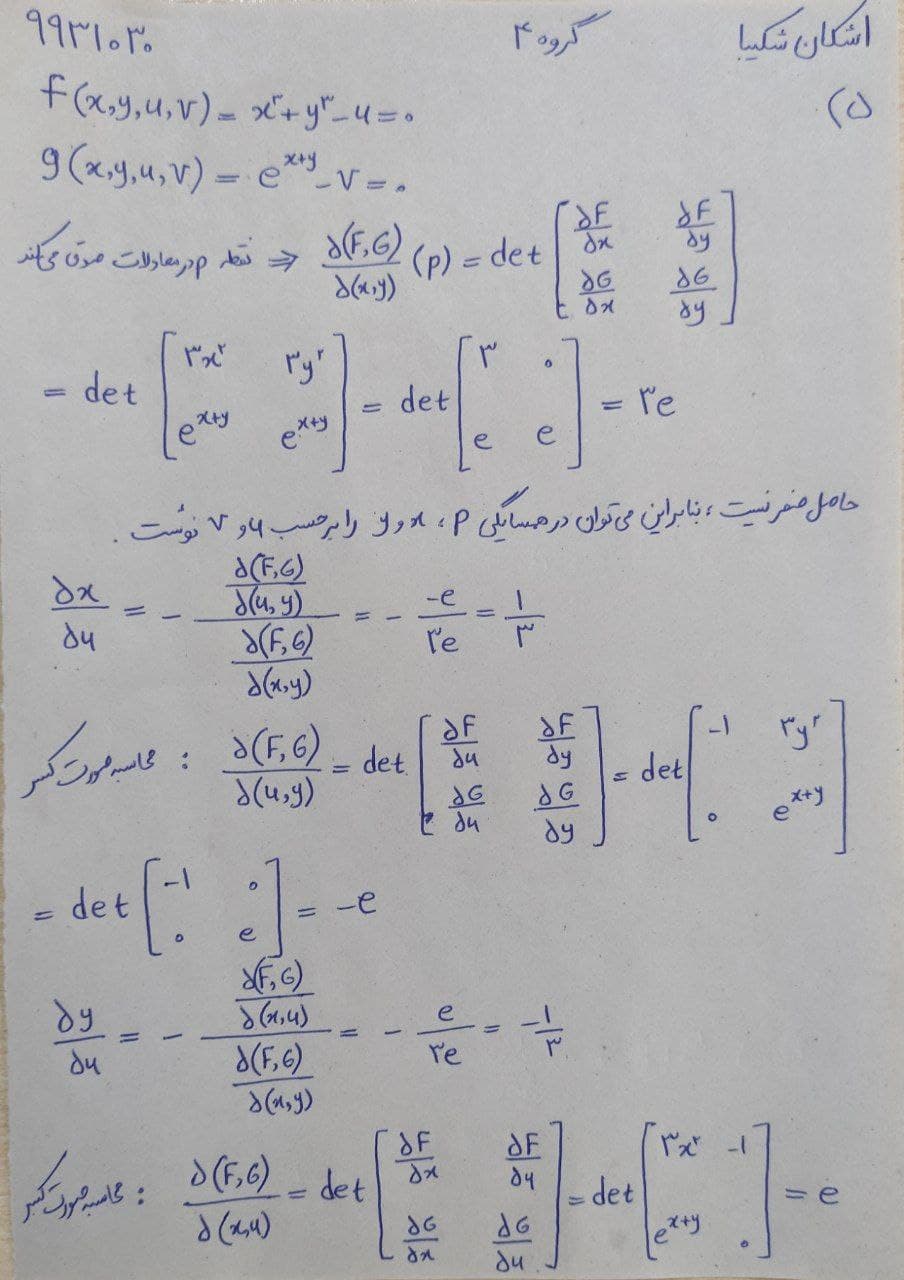 اشکان شکیبا گروه ۴ ۹۹۳۱۰۳۰
۵)
f(x,y,u,v) = x³+y³-u=۰
g(x,y,u,v) = e^{x+y}-v=۰
نقطه p در معادلات صدق می‌کند ⇒ ∂(F,G)/∂(x,y) (p) = det [∂F/∂x ∂F/∂y ; ∂G/∂x ∂G/∂y]
= det [۳x² ۳y² ; e^{x+y} e^{x+y}] = det [۳ ۰ ; e e] = ۳e
حاصل صفر نیست، بنابراین می‌توان در همسایگی p، x و y را برحسب u و v نوشت.
∂x/∂u = - (∂(F,G)/∂(u,y))/(∂(F,G)/∂(x,y)) = - -e/۳e = ۱/۳
محاسبه صورت کسر : ∂(F,G)/∂(u,y) = det [∂F/∂u ∂F/∂y ; ∂G/∂u ∂G/∂y] = det [-۱ ۳y² ; ۰ e^{x+y}]
= det [-۱ ۰ ; ۰ e] = -e
∂y/∂u = - (∂(F,G)/∂(x,u))/(∂(F,G)/∂(x,y)) = - e/۳e = -۱/۳
محاسبه صورت کسر : ∂(F,G)/∂(x,u) = det [∂F/∂x ∂F/∂u ; ∂G/∂x ∂G/∂u] = det [۳x² -۱ ; e^{x+y} ۰] = e